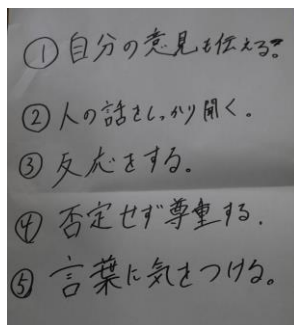 ①自分の意見も伝える。
②人の話をしっかり聞く。
③反応をする。
④否定せず尊重する.
⑤言葉に気をつける。